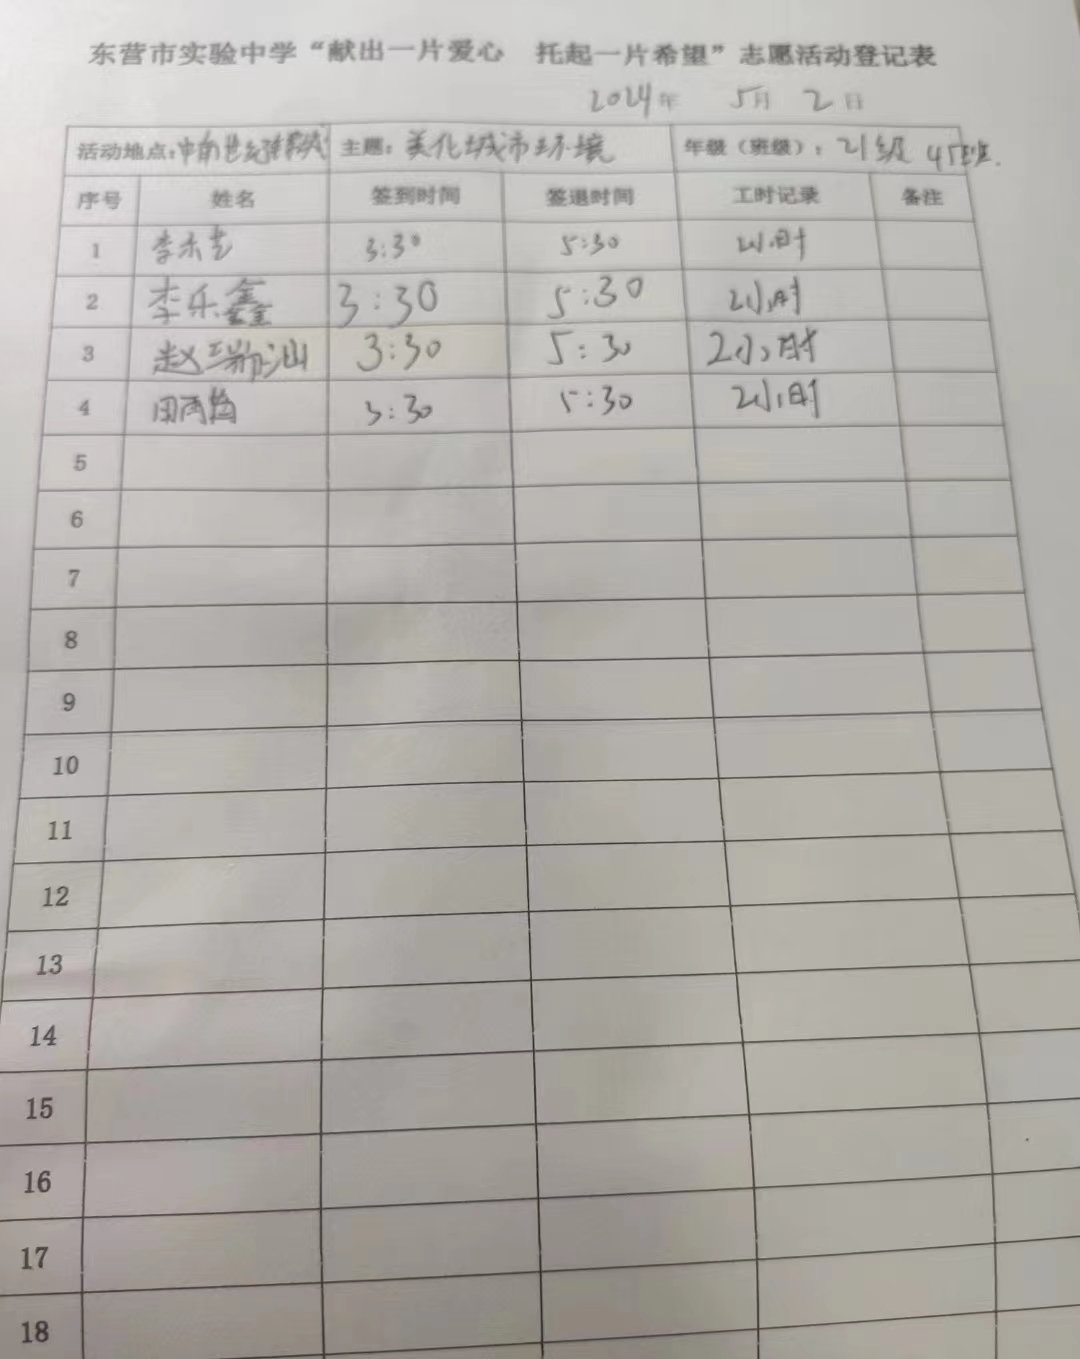 东营市实验中学“献出一片爱心 托起一片希望”志愿活动登记表
2024年 5月 2日
活动地点：中南世纪锦城 主题：美化城市环境 年级（班级）：21级 45班.
序号 姓名 签到时间 签退时间 工时记录 备注
1 李乐艺 3:30 5:30 2小时
2 李乐鑫 3:30 5:30 2小时
3 赵 3:30 5:30 2小时
4 田雨 3:30 5:30 2小时
5
6
7
8
9
10
11
12
13
14
15
16
17
18